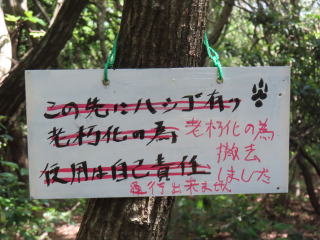 この先にハシゴ有り
老朽化の為
使用は自己責任
老朽化の為
撤去
しました
通行出来ます